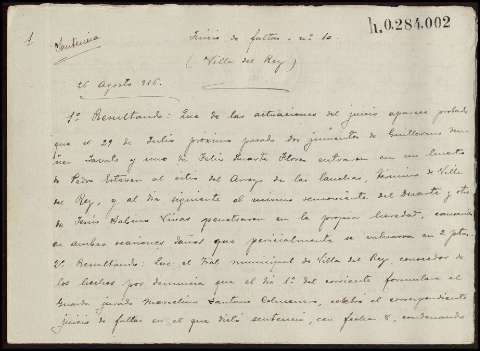 1
h.0.284.002
Sentencia
Juicio de faltas. nº 10.
(Villa del Rey)
26 Agosto 936.
1º Resultando: Que de las actuaciones del juicio aparece probado
que el 29 de Julio próximo pasado dos jumentos de Guillermo
y uno de Felix Duarte Flores entraron en un huerto
de Pedro Estévez al sitio del Arroyo de las término de Villa
del Rey, y al dia siguiente el mismo semoviente del Duarte y otro
de Jesús Vivas penetraron en la propia heredad, causando
en ambas ocasiones daños que pericialmente se en 2 ptas.
2º Resultando: Que el Tbal municipal de Villa del Rey, conocedor de
los hechos por denuncia que el dia 1º del corriente formulara el
Guarda jurado Marcelino Santano celebró el correspondiente
juicio de faltas en el que dictó sentencia, con fecha 8, condenando